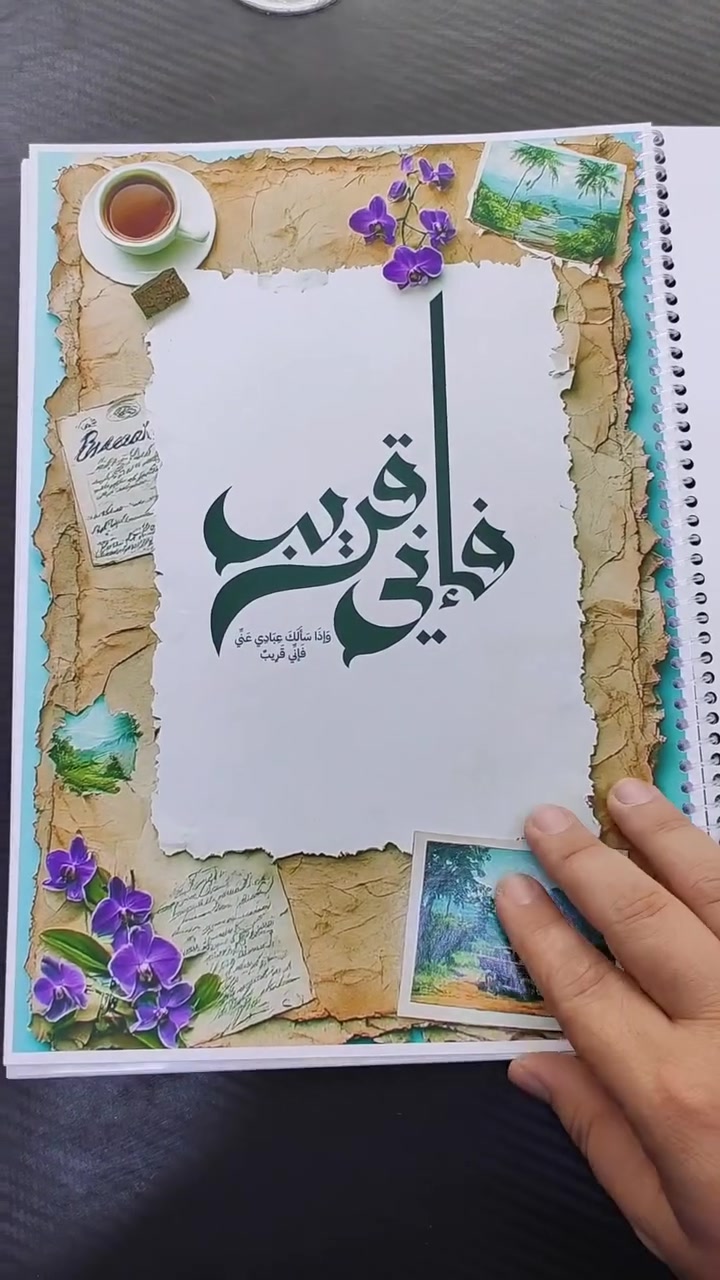 فإني قريب
وَإِذَا سَأَلَكَ عِبَادِي عَنِّي
فَإِنِّي قَرِيبٌ